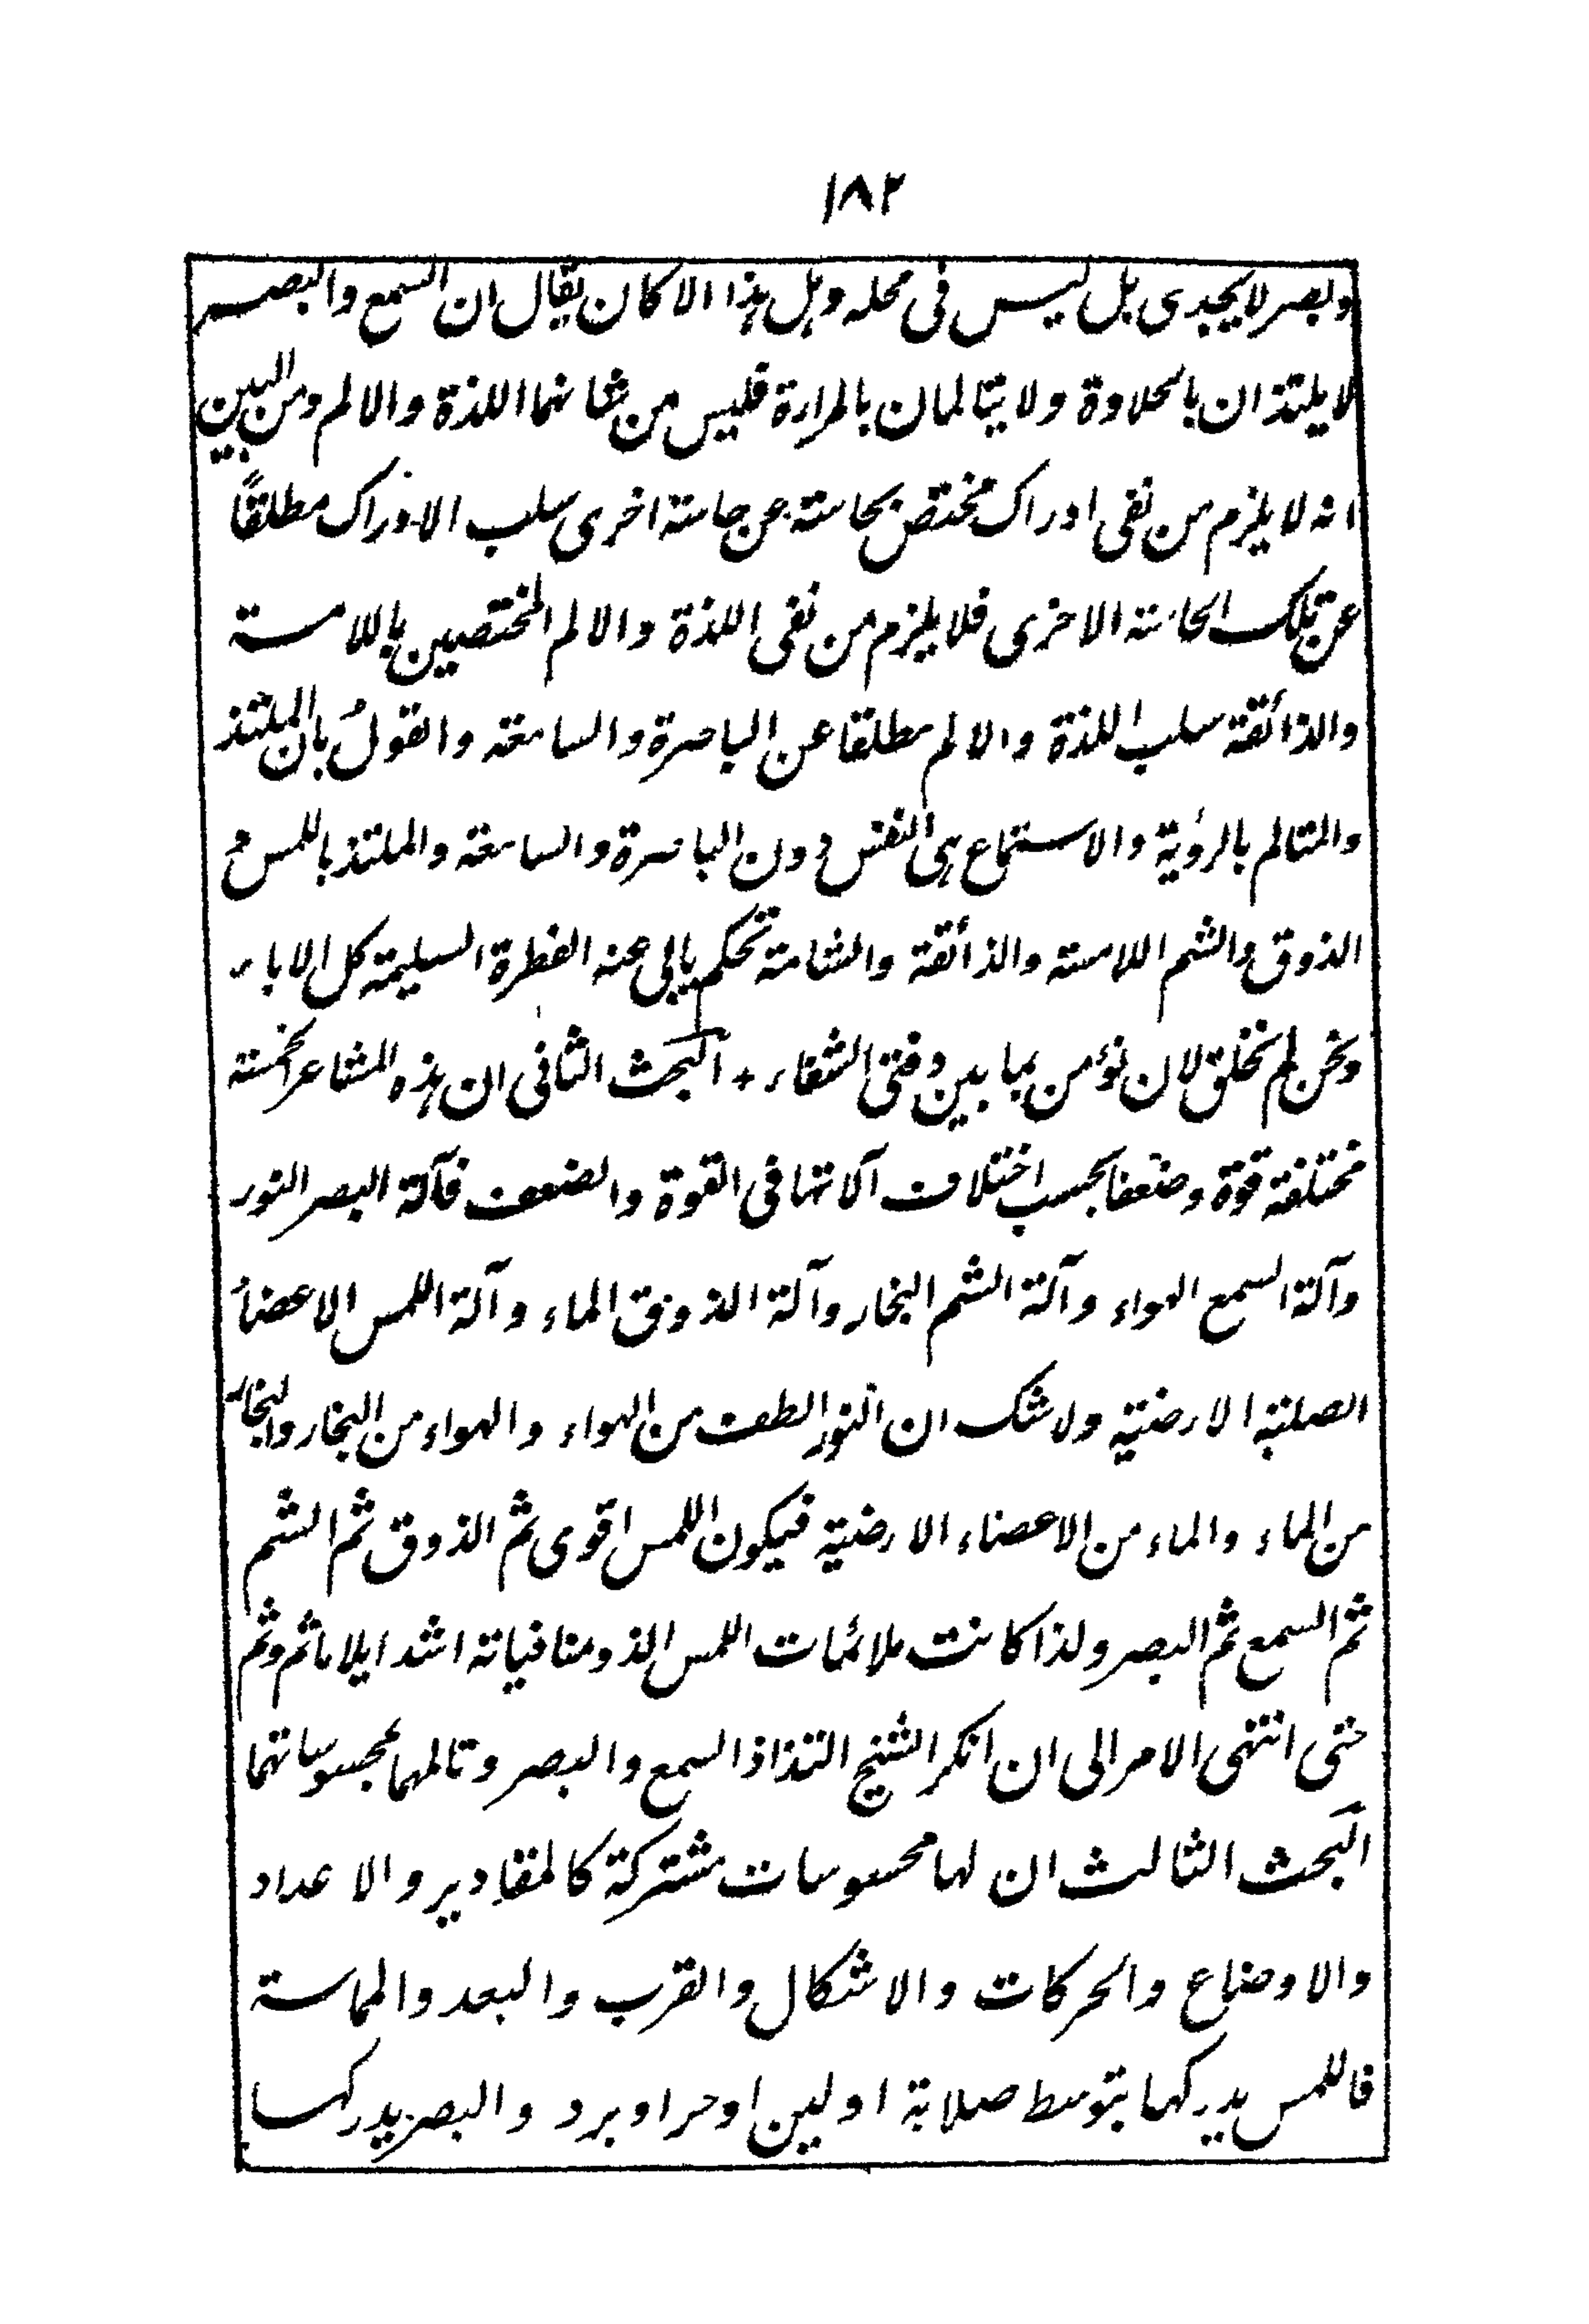 ١٨٢
وبصر لا يجدى بل ليس فى محله وهل هذا الا كان يقال ان السمع والبصر
لا يلتذان بالحلاوة ولا يتالمان بالمرارة فليس من شانهما اللذة والالم ومن البين
انه لا يلزم من نفى ادراك مختص بحاسة عن حاسة اخرى سلب الادراك مطلقًا
عن تلك الحاسة الاخرى فلا يلزم من نفى اللذة والالم المختصين باللامسة
والذائقة سلب اللذة والالم مطلقا عن الباصرة والسامعة والقولُ بان الملتذ
والمتالم بالرؤية والاستماع هى النفس دون الباصرة والسامعة والملتذ باللمس و
الذوق والشم اللامسة والذائقة والشامة تحكم يابى عنه الفطرة السليمة كل الاباء
ونحن لم نخلق لان نؤمن بما بين دفتى الشفاء + البحث الثانى ان هذه المشاعر الخمسة
مختلفة قوة وضعفا بحسب اختلاف آلاتها فى القوة والضعف فآلة البصر النور
وآلة السمع الهواء وآلة الشم البخار وآلة الذوق الماء وآلة اللمس الاعضاء
الصلبة الارضية ولا شك ان النور الطف من الهواء والهواء من البخار والبخار
من الماء والماء من الاعضاء الارضية فيكون اللمس اقوى ثم الذوق ثم الشم
ثم السمع ثم البصر ولذا كانت ملائمات اللمس الذ ومنافياته اشد ايلاما ثم وثم
حتى انتهى الامر الى ان انكر الشيخ التذاذ السمع والبصر وتالمهما بمحسوساتهما
البحث الثالث ان لها محسوسات مشتركة كالمقادير والاعداد
والاوضاع والحركات والاشكال والقرب والبعد والمماسة
فاللمس يدركها بتوسط صلابة او لين او حر او برد والبصر يدركها